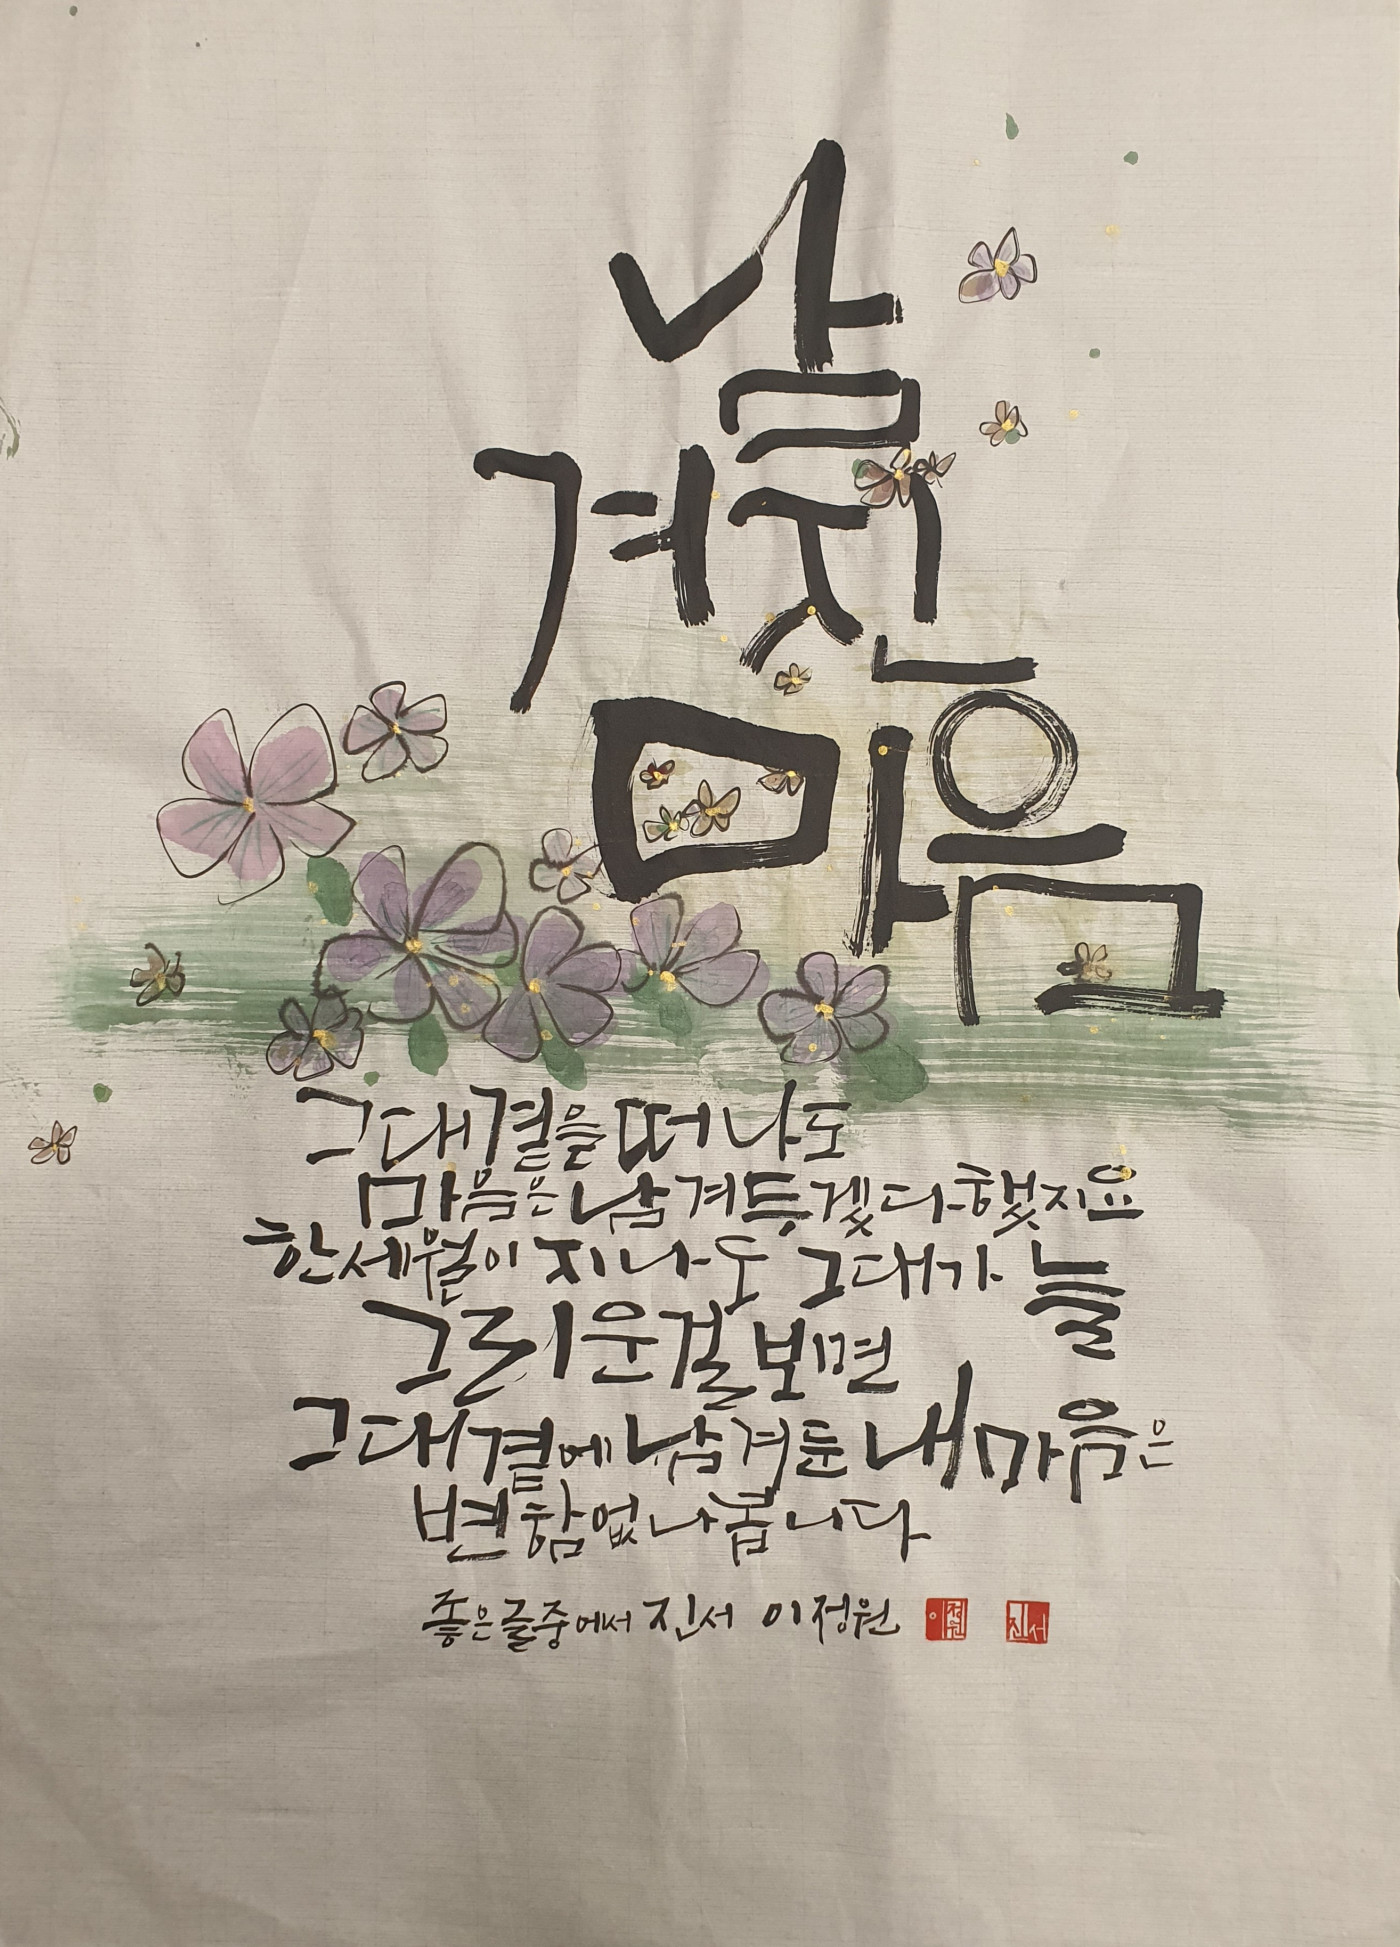 남
겨진
마음
그대곁을 떠나도
마음은 남겨두겠다 했지요
한세월이 지나도 그대가 늘
그리운걸 보면
그대곁에 남겨둔 내마음은
변함없나봅니다
좋은글중에서 진서 이정원 이정원 진서